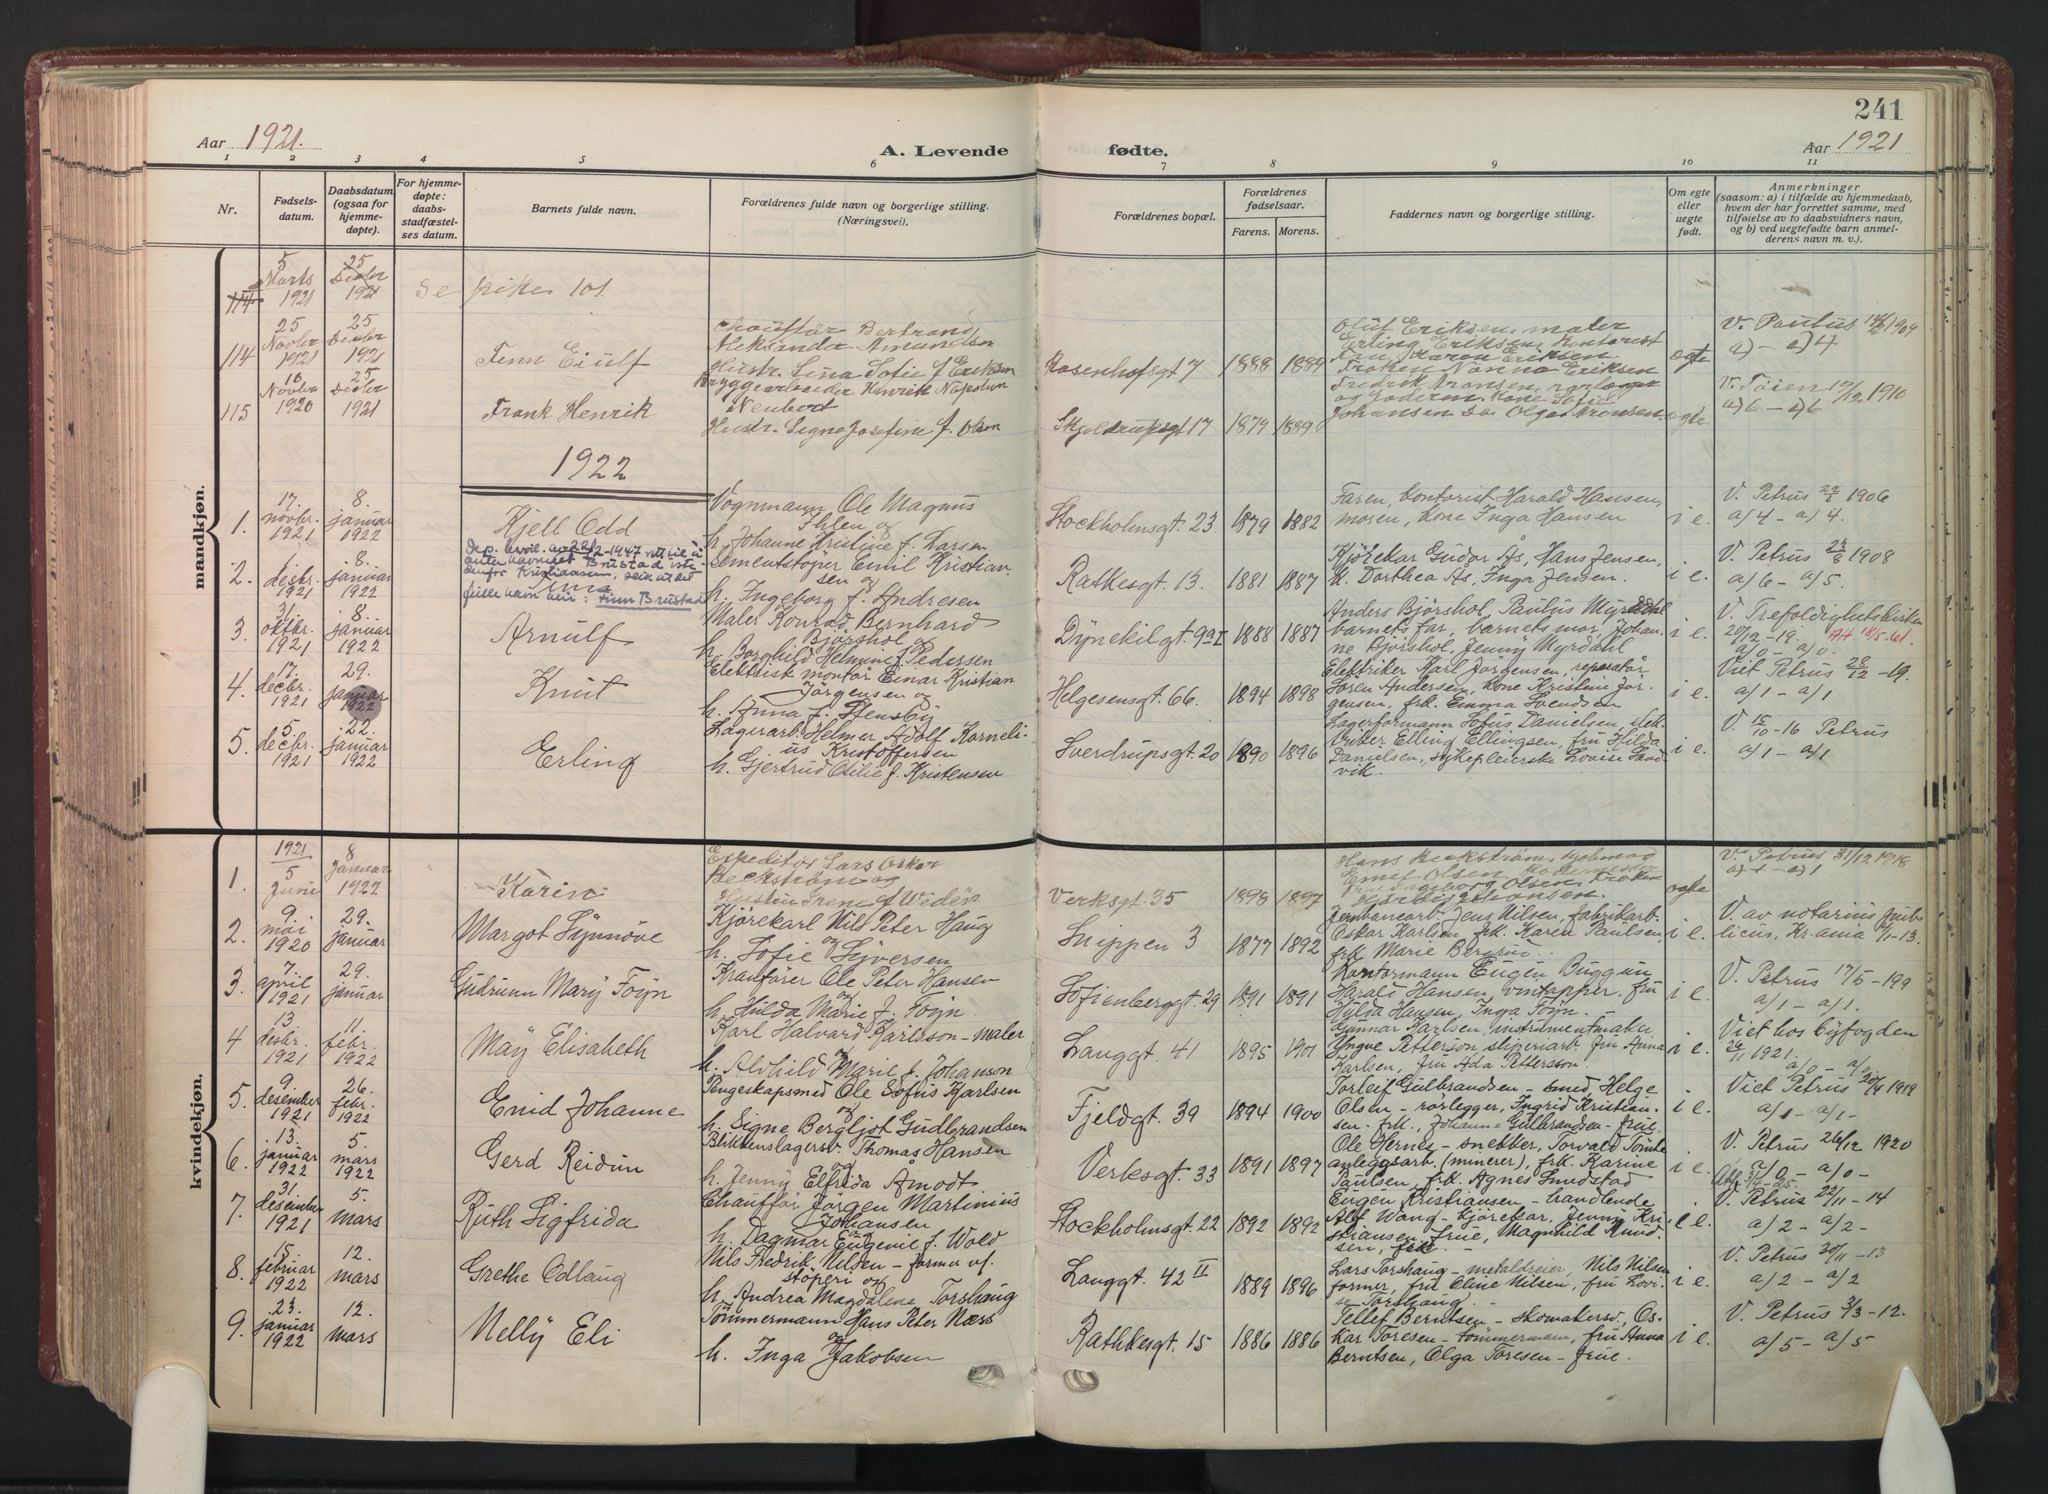 241
Aar 1921.
A. Levende fødte.
Aar 1921
1 2 3 4 5 6 7 8 9 10 11
Nr.
Fødsels-
datum.
Daabsdatum
(ogsaa for
hjemme-
døpte).
For hjemme-
døpte:
daabs-
stadfæstel-
ses datum.
Barnets fulde navn.
Forældrenes fulde navn og borgerlige stilling.
(Næringsvei).
Forældrenes bopæl.
Forældrenes
fødselsaar.
Farens. Morens.
Faddernes navn og borgerlige stilling.
Om egte
eller
uegte
født.
Anmerkninger
(saasom: a) i tilfælde av hjemmedaab,
hvem der har forrettet samme, med
tilføielse av to daabsvidners navn,
og b) ved uegtefødte barn anmel-
derens navn m. v.).
mandkjøn.
114
5
Marts
1921
25
Decbr
1921
se piker 101
114
25
Novbr
1921
25
Decbr
1921
Finn Eiulf
Chauffør Bertrand
Aleksander Amundsen
Hustr. Lina Sofie f Eriksen
Rosenhofsgt 7
1888 1889
Oluf Eriksen, maler
Erling Eriksen, kontorist
Fru Karen Eriksen
Frøken Nanna Eriksen
egte
V. Paulus 1909
a) – a) 4
115
16
Novbr
1920
25
Decbr
1921
Frank Henrik
Bryggearbeider Henrik Napoleon
Neubert
Hustr. Signe Josefine f. Olsen
Skjoldrupsgt 17
1879 1889
Fredrik Aronsen,
og Kone Sofie
Johansen Olga Aronsen.
egte
V. Tøien 17/12 1910
a) 6 – a) 6
1922
1.
17.
novbr.
1921
8.
januar
1922
Kjell Odd
Vognmann Ole Magnus
Ihlen og
h. Johanne Kristine f. Larsen
Stockholmsgt. 23
1879 1882
Faren, kontorist Harald Hansen,
moren, kone Inga Hansen
i e.
V. Petrus 1906
a/4 – a/4.
Dep. bevil. av 22/2-1947 rett til å
anta navnet Brustad iste-
denfor Kristiansen, slik at det
fulle navn blir: Finn Brustad
2.
desbr.
1921
8.
januar
1922
Sementstøper Emil Kristian-
sen og
h. Ingeborg f. Andresen
Rathkesgt. 13.
1881 1887
Kjørekar Gudor Ås, Hans Jensen,
k. Dorthea Ås, Inga Jensen.
i e.
V. Petrus 1908
a/6 – a/5.
3.
31.
oktbr.
1921
8.
januar
1922
Arnulf
Maler Konrad Bernhard
Bjørshol og
h. Borghild Helmine f. Pedersen
Dynekilgt 9a I
1888 1887
Anders Bjørshol, Paulus Myrdahl
barnets far, barnets mor, Johan-
ne Bjørshol, Jenny Myrdahl
i e.
V. Trefoldighetskirken
20/12 – 19. 18/5-61.
a/0 – a/0.
4.
17.
decbr.
1921
29.
januar
1922
Knut
Elektrisk montør Einar Kristian
Jørgensen og
h. Anna f. Stensby
Helgesensgt. 66.
1894 1898
Elektriker Karl Jørgensen, reperatør
Søren Andersen, kone Kristine Jør-
gensen, frk. Emma Svendsen
i e.
Viet Petrus 28/12 – 19.
a/1 – a/1
5.
5.
decbr.
1921
22.
januar
1922
Erling
Lagerarb. Helmer Adolf Korneli-
us Kristoffersen
h. Gjertrud Otilie f. Kristensen
Sverdrupsgt. 20
1890 1896
Lagerformann Sofus Danielsen, elek-
triker Elling Ellingsen, fru Hilda
Danielsen, sykepleierske Lovise Sand-
vik.
i e.
V. 15/10 – 16 Petrus
a/1 – a/1
kvindekjøn.
1921
1.
5
Juni
8
Januar
1922
Karin
Expeditør Lars Oskar
Beckstrøm og
Hustru Irene f Wedér
Verksgt. 35
1898 1897
Hans Beckstrøm,
Emil Olsen
Fru Ingeborg Olsen, Frøken
egte
V. Petrus 31/12 1918
a) + – a) 1
2.
9.
mai
1920
29.
januar
Margot Synnøve
Kjørekarl Nils Peter Haug
og
h. Sofie Syversen
Snippen 3
1877 1892
Jernbanearb. Jens Nilsen, fabrikarb.
Oskar Karlsen, frk. Karen Paulsen,
frk Marie Bergsrud.
i e.
V. av notarius pub-
licus, Kr.ania /11-13.
3.
7.
april
1921
29.
januar
Gudrunn Mary Foyn
Kranfører Ole Peter Hansen
og
h. Hilda Marie f. Foyn
Sofienberggt. 29
1891 1891
Kontormann Eugen Buggun
Harald Hansen, vintapper, fru
Hylda Hansen, Inga Foyn.
i e.
V. Petrus 17/5 – 199
a/1 – a/1.
4
13
desbr.
1921
11.
febr.
1922
May Elisabeth
Karl Halvard Karlsson – maler
og
h. Alvhild Marie f. Johanson
Langgt. 41
1895 1901
Gunnar Karlsen, instrumentmaker
Yngve Petterson, sliperiarb. Fru Anna
Karlsen, fru Ada Pettersson.
i e.
Viet hos byfogden
26/11 1921.
a/0 – a/0
5.
9.
desember
1921
26.
febr.
1922
Enid Johanne
Pengeskapsmed Ole Sofus Karlsen
og
h. Signe Bergljot Gudbrandsen
Fjeldgt. 39
1894 1900
Torleif Gulbrandsen – smed, Helge
Olsen – rørlegger, Ingrid Kristian-
sen – frk., Johanne Gulbrandsen – frue.
i e.
Viet Petrus 1919
a/1 – a/1 –
6.
13.
januar
1922
5.
mars
1922
Gerd Reidun
Blikkenslagersv. Thomas Hansen
og
h. Jenny Elfrida Åmodt
Verksgt. 33
1891 1897
Ole Hernes – snekker, Torvald Tombe
anleggsarb. (minerer), frk. Karine
Paulsen, frk. Agnes Sundstad
i e.
V. Petrus 26/12 1920
a/0 – a/0 –
7.
31.
desember
1921
5.
mars
Ruth Sigfrida
Chauffør Jørgen Martinius
Johansen
h. Dagmar Eugenie f. Wold
Stockholmsgt. 22
1892 1892
Eugen Kristiansen – handlende
Alf Wang – kjørekar, Jenny Kri-
stiansen, frue, Magnhild Knud-
sen, frk. –
i e.
V. Petrus 22/11 – 14
a/2 – a/2 –
8.
15.
februar
1922
12.
mars
Grethe Odlaug
Nils Fredrik Nilsen – former vf.
støperi og
h. Andrea Magdalene Torshaug
Langgt. 42 II
1889 1896
Lars Torshaug – metaldreier, Nils Nilsen
former, fru Oline Nilsen, fru Lovi-
se Torshaug.
i e.
V. Petrus 30/11 – 13
a/2 – a/2
9.
23.
januar
1922
12.
mars
Nelly Eli
Tømmermann Hans Peter Næss
og
h. Inga Jakobsen
Rathkesgt. 15
1886 1886
Tellef Berntsen – skomakersv., Os-
kar Toresen – tømmermann, fru Anna
Berntsen, Olga Toresen – frue.
i e.
V. Petrus 3/3 – 12.
a/5 – a/5